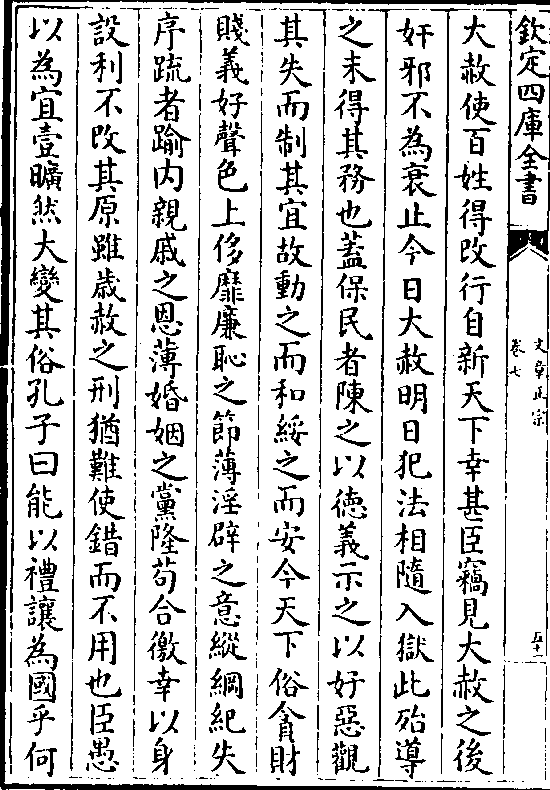 欽定四庫全書
文章正宗
卷七
五十一
大赦使百姓得改行自新天下幸甚臣竊見大赦之後
奸邪不為衰止今日大赦明日犯法相隨入獄此殆導
之未得其務也蓋保民者陳之以德義示之以好惡觀
其失而制其宜故動之而和綏之而安今天下俗貪財
賤義好聲色上侈靡廉恥之節薄淫辟之意縱綱紀失
序疏者踰内親戚之恩薄婚姻之黨隆苟合徼幸以身
設利不改其原雖歲赦之刑猶難使錯而不用也臣愚
以為宜壹曠然大變其俗孔子曰能以禮讓為國乎何